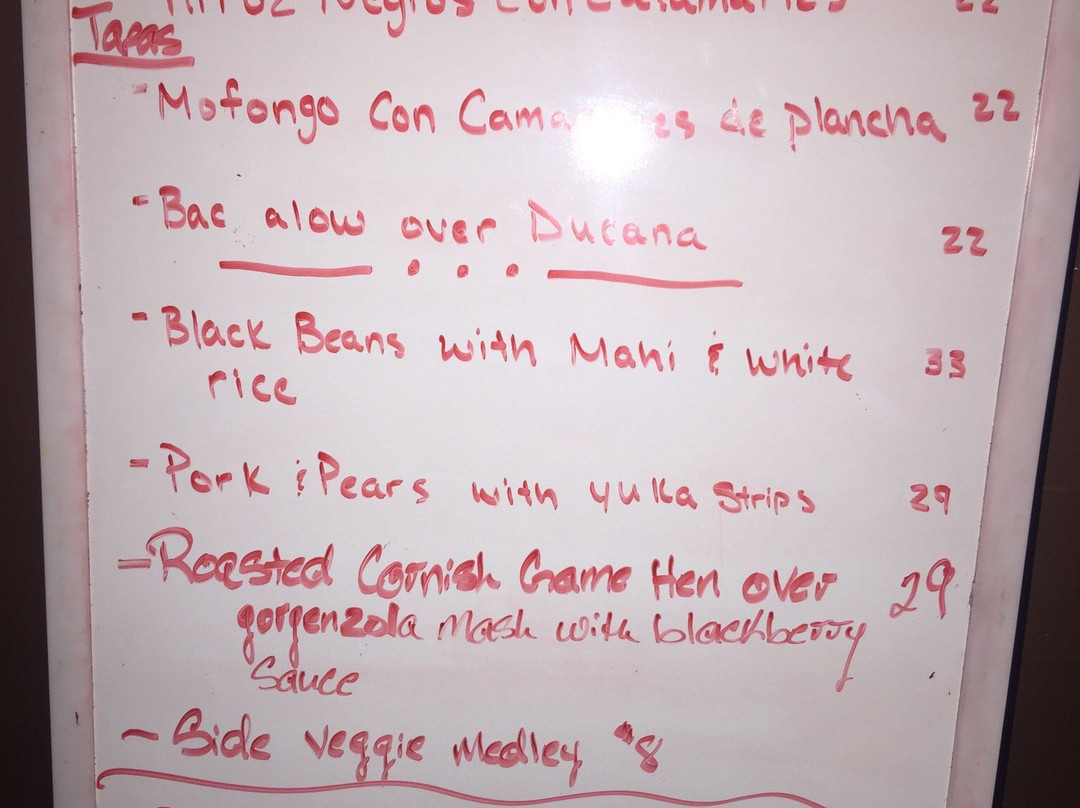 22
Tapas
- Mofongo Con de plancha 22
- Bac alow over Ducana 22
- Black Beans with Mahi & white 33
rice
- Pork & Pears with yuka Strips 29
- Roasted Cornish Game Hen over 29
gorgenzola Mash with blackberry
Sauce
- Side veggie Medley $8